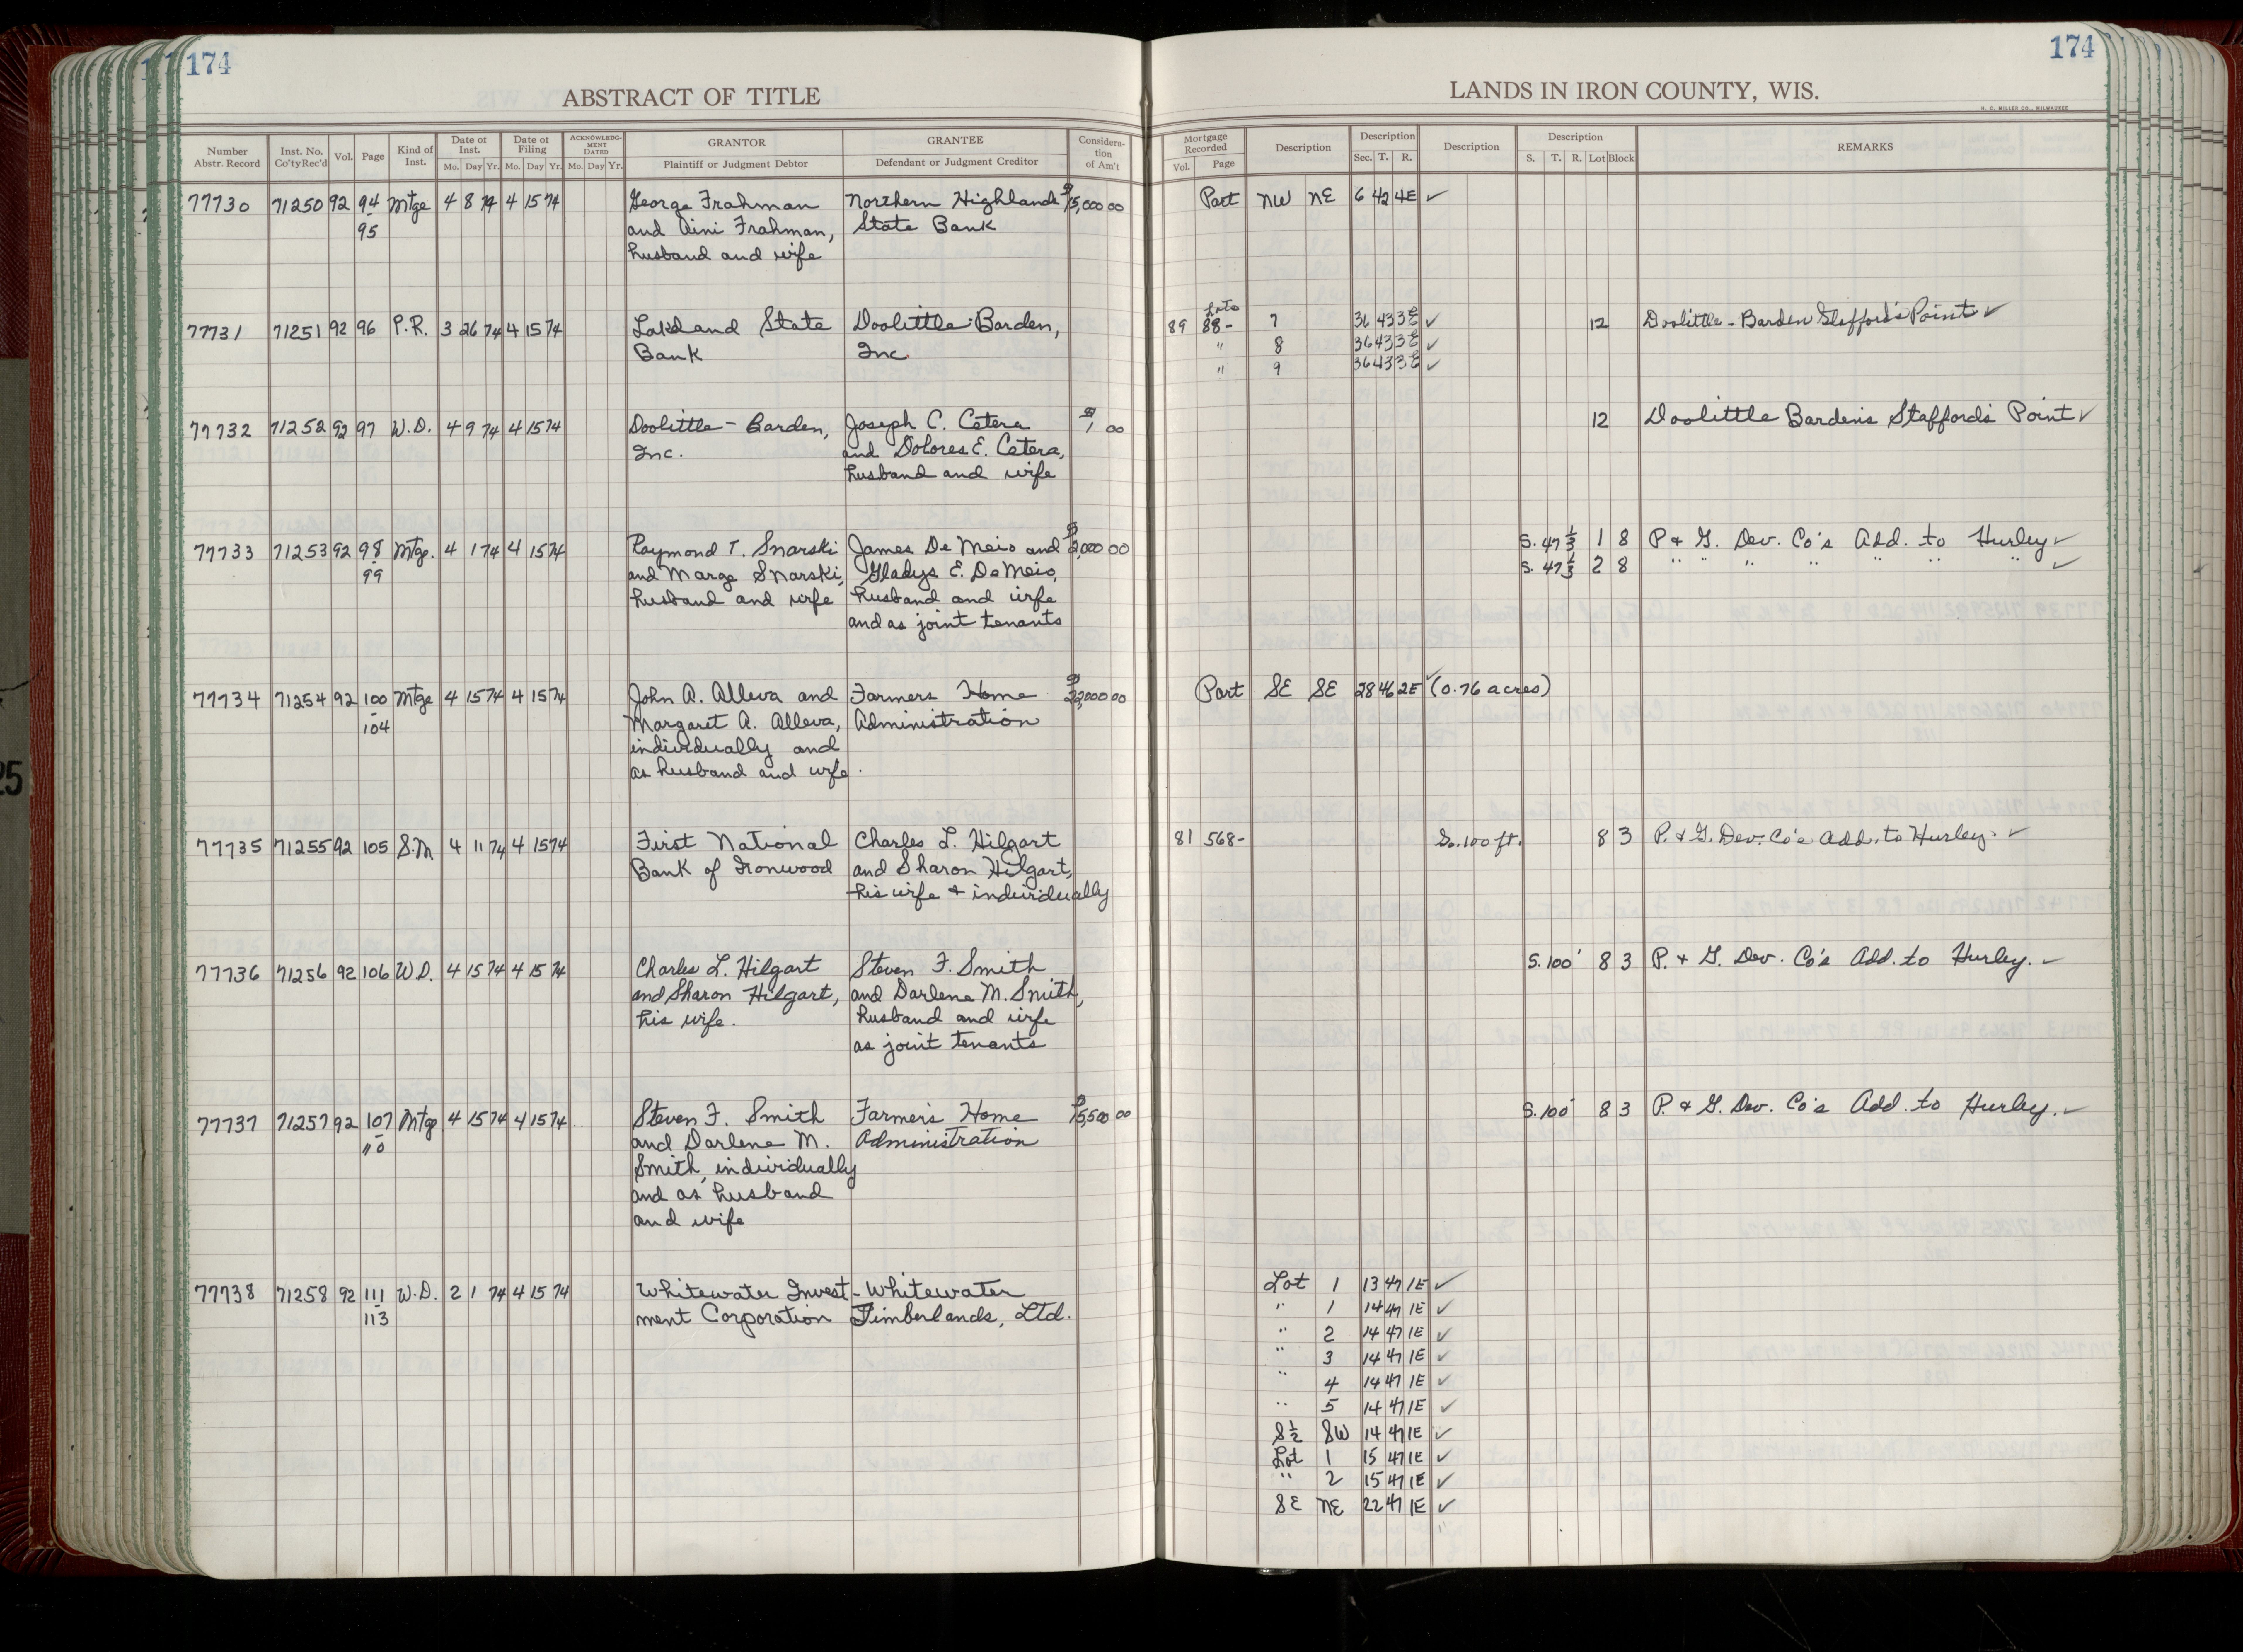 174
174
ABSTRACT OF TITLE
LANDS IN IRON COUNTY, WIS.
H. C. MILLER CO., MILWAUKEE
Number Abstr. Record Inst. No. Co'ty Rec'd Vol. Page Kind of Inst. Date of Inst. Mo. Day Yr. Date of Filing Mo. Day Yr. ACKNOWLEDGMENT DATED Mo. Day Yr. GRANTOR Plaintiff or Judgment Debtor GRANTEE Defendant or Judgment Creditor Consideration of Am't
Mortgage Recorded Vol. Page Description Description Sec. T. R. Description Description S. T. R. Lot Block REMARKS
77730 71250 92 94 Mtge 4 8 74 4 15 74 George Frahman Northern Highland $15,000 00 Part NW NE 6 42 4E ✓
95 and Aini Frahman, State Bank
husband and wife
Lots
77731 71251 92 96 P.R. 3 26 74 4 15 74 Lakeland State Doolittle-Barden, 89 88- 7 36 43 3E ✓ 12 Doolittle-Barden Stafford's Point ✓
Bank Inc. " 8 36 43 3E ✓
" 9 36 43 3E ✓
77732 71252 92 97 W.D. 4 9 74 4 15 74 Doolittle-Barden, Joseph C. Cetera $1 00 12 Doolittle Barden's Stafford's Point ✓
Inc. and Dolores E. Cetera,
husband and wife
77733 71253 92 98 Mtge. 4 1 74 4 15 74 Raymond T. Snarski James De Meio and $2,000 00 S. 47 1/3 1 8 P. & G. Dev. Co's Add. to Hurley ✓
99 and Marge Snarski, Gladys E. DeMeio, S. 47 1/3 2 8 " " " " " " " ✓
husband and wife husband and wife
and as joint tenants
77734 71254 92 100 Mtge 4 15 74 4 15 74 John A. Alleva and Farmers Home $22,000 00 Part SE SE 28 46 2E ✓ (0.76 acres)
104 Margaret A. Alleva, Administration
individually and
as husband and wife.
77735 71255 92 105 S.M 4 11 74 4 15 74 First National Charles L. Hilgart 81 568- So. 100 ft. 8 3 P. & G. Dev. Co's Add. to Hurley. ✓
Bank of Ironwood and Sharon Hilgart,
his wife & individually
77736 71256 92 106 W.D. 4 15 74 4 15 74 Charles L. Hilgart Steven F. Smith S. 100' 8 3 P. & G. Dev. Co's Add. to Hurley. ✓
and Sharon Hilgart, and Darlene M. Smith,
his wife. husband and wife
as joint tenants
77737 71257 92 107 Mtg 4 15 74 4 15 74 Steven F. Smith Farmer's Home $15,500 00 S. 100' 8 3 P. & G. Dev. Co's Add. to Hurley. ✓
110 and Darlene M. Administration
Smith, individually
and as husband
and wife
77738 71258 92 111 W.D. 2 1 74 4 15 74 Whitewater Invest- Whitewater Lot 1 13 47 1E ✓
113 ment Corporation Timberlands, Ltd. " 1 14 47 1E ✓
" 2 14 47 1E ✓
" 3 14 47 1E ✓
" 4 14 47 1E ✓
" 5 14 47 1E ✓
S½ SW 14 47 1E ✓
Lot 1 15 47 1E ✓
" 2 15 47 1E ✓
SE NE 22 47 1E ✓